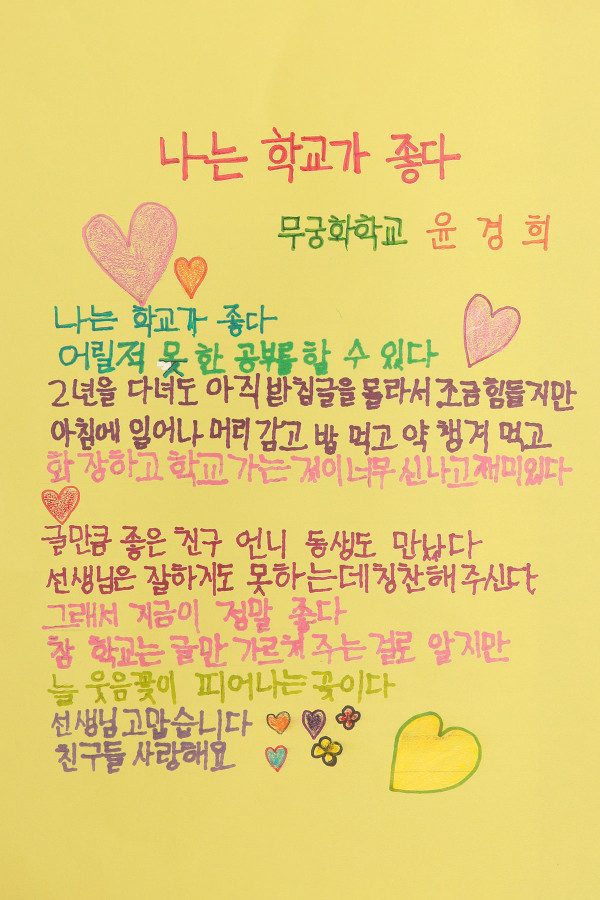 나는 학교가 좋다
무궁화학교 윤경희
나는 학교가 좋다
어릴적 못 한 공부를 할 수 있다
2년을 다녀도 아직 받침글을 몰라서 조금 힘들지만
아침에 일어나 머리 감고 밥 먹고 약 챙겨 먹고
화장하고 학교 가는 것이 너무 신나고 재미있다
글만큼 좋은 친구 언니 동생도 만났다
선생님은 잘하지도 못하는데 칭찬해 주신다
그래서 지금이 정말 좋다
참 학교는 글만 가르쳐 주는 걸로 알지만
늘 웃음꽃이 피어나는 곳이다
선생님 고맙습니다
친구들 사랑해요